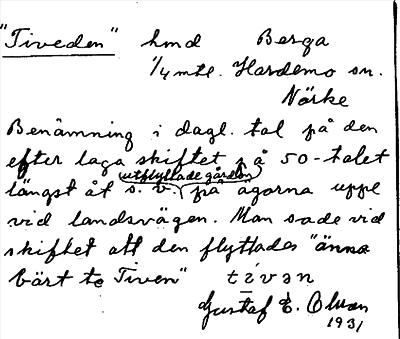 "Tiveden" hmd Berga
1/4 mtl. Hardemo sn.
Närke
Benämning i dagl. tal på den
efter laga skiftet på 50-talet
utflyttade gården
längst åt s. v. på ägorna uppe
vid landsvägen. Man sade vid
skiftet att den flyttades "änna
bärt te Tiven" tívən
Gustaf E. Olsson
1931